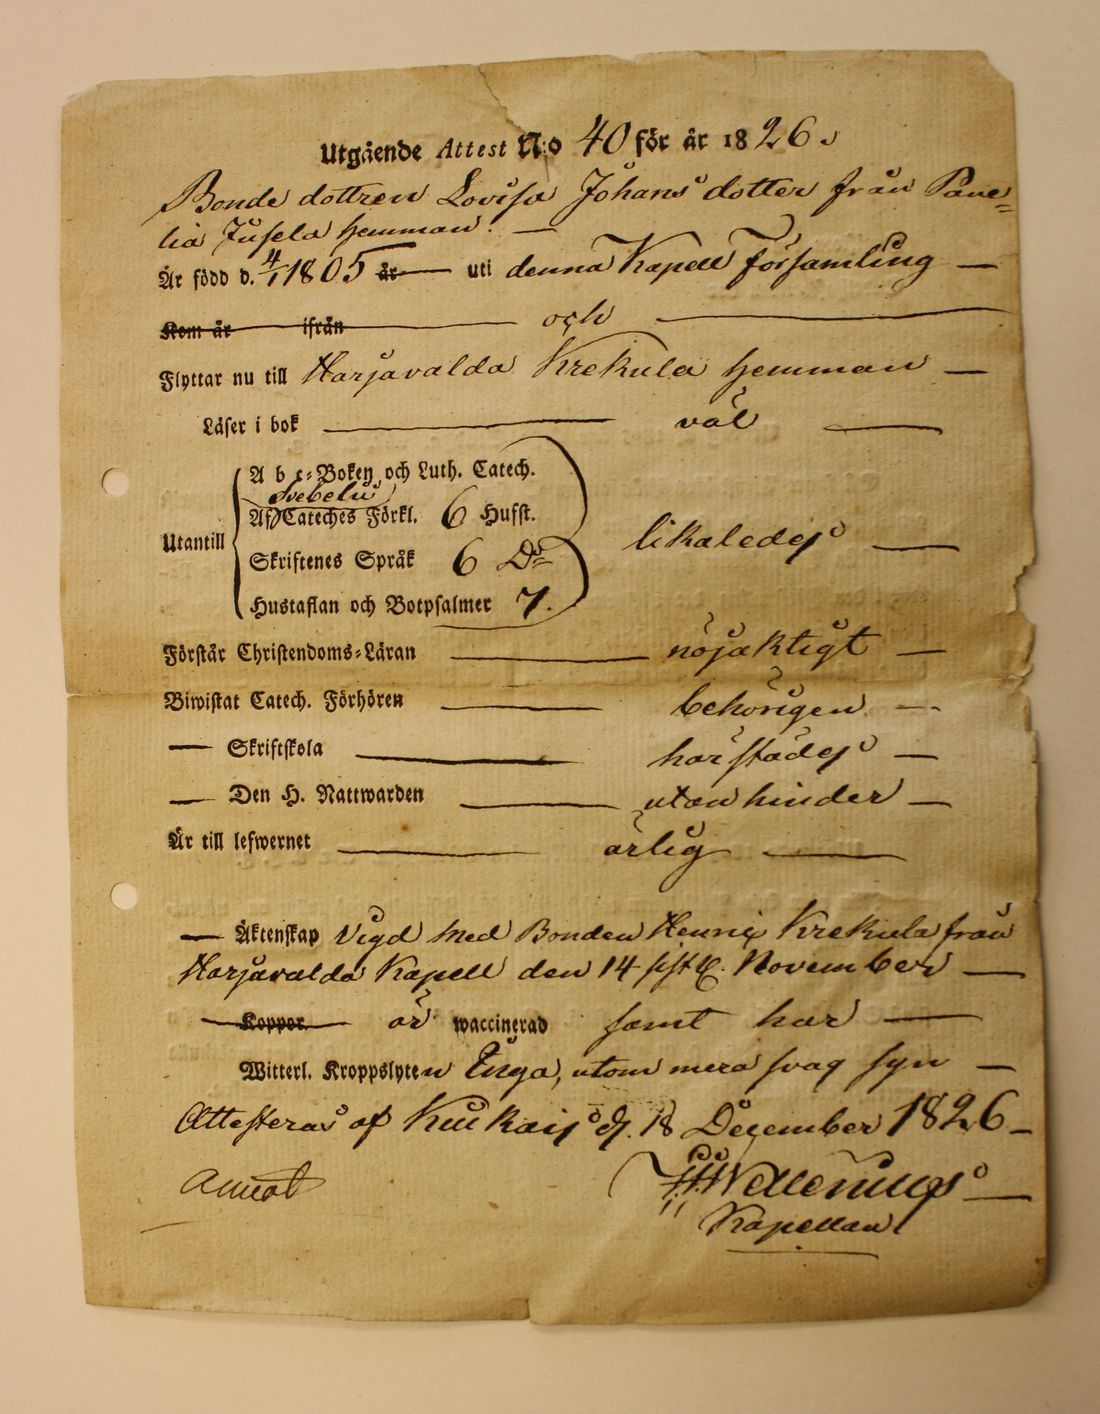 Utgående Attest N:o 40 för år 1826.
Bonde dottren Lovisa Johans dotter från Pane=
lia Jusela hemman. —
Är född d. 4/1 1805 år — uti denna Kapell församling —
Kom år ifrån — och —
Flyttar nu till Harjavalda Krekula hemman —
Läser i bok — väl —
A b c=Boken och Luth. Catech.
Svebelii
Af Cateches Förkl. 6 Hufst.
Utantill likaledes —
Skriftenes Språk 6 Do
Hustaflan och Botpsalmer 7.
Förstår Christendoms=Läran — nöjaktigt —
Biwistat Catech. Förhören — behörigen —
— Skriftskola — härstädes —
— Den H. Nattwarden — utan hinder —
Är till lefwernet — ärlig —
— Äktenskap Vigd med Bonden Henric Krekula från
Harjavalda Kapell den 14 sistl. November —
Koppor är waccinerad samt har —
Witterl. Kroppslyten Inga, utom mera svag syn —
Attesteras af Kiukais d. 18 December 1826 —
Wellenius —
Kapellan